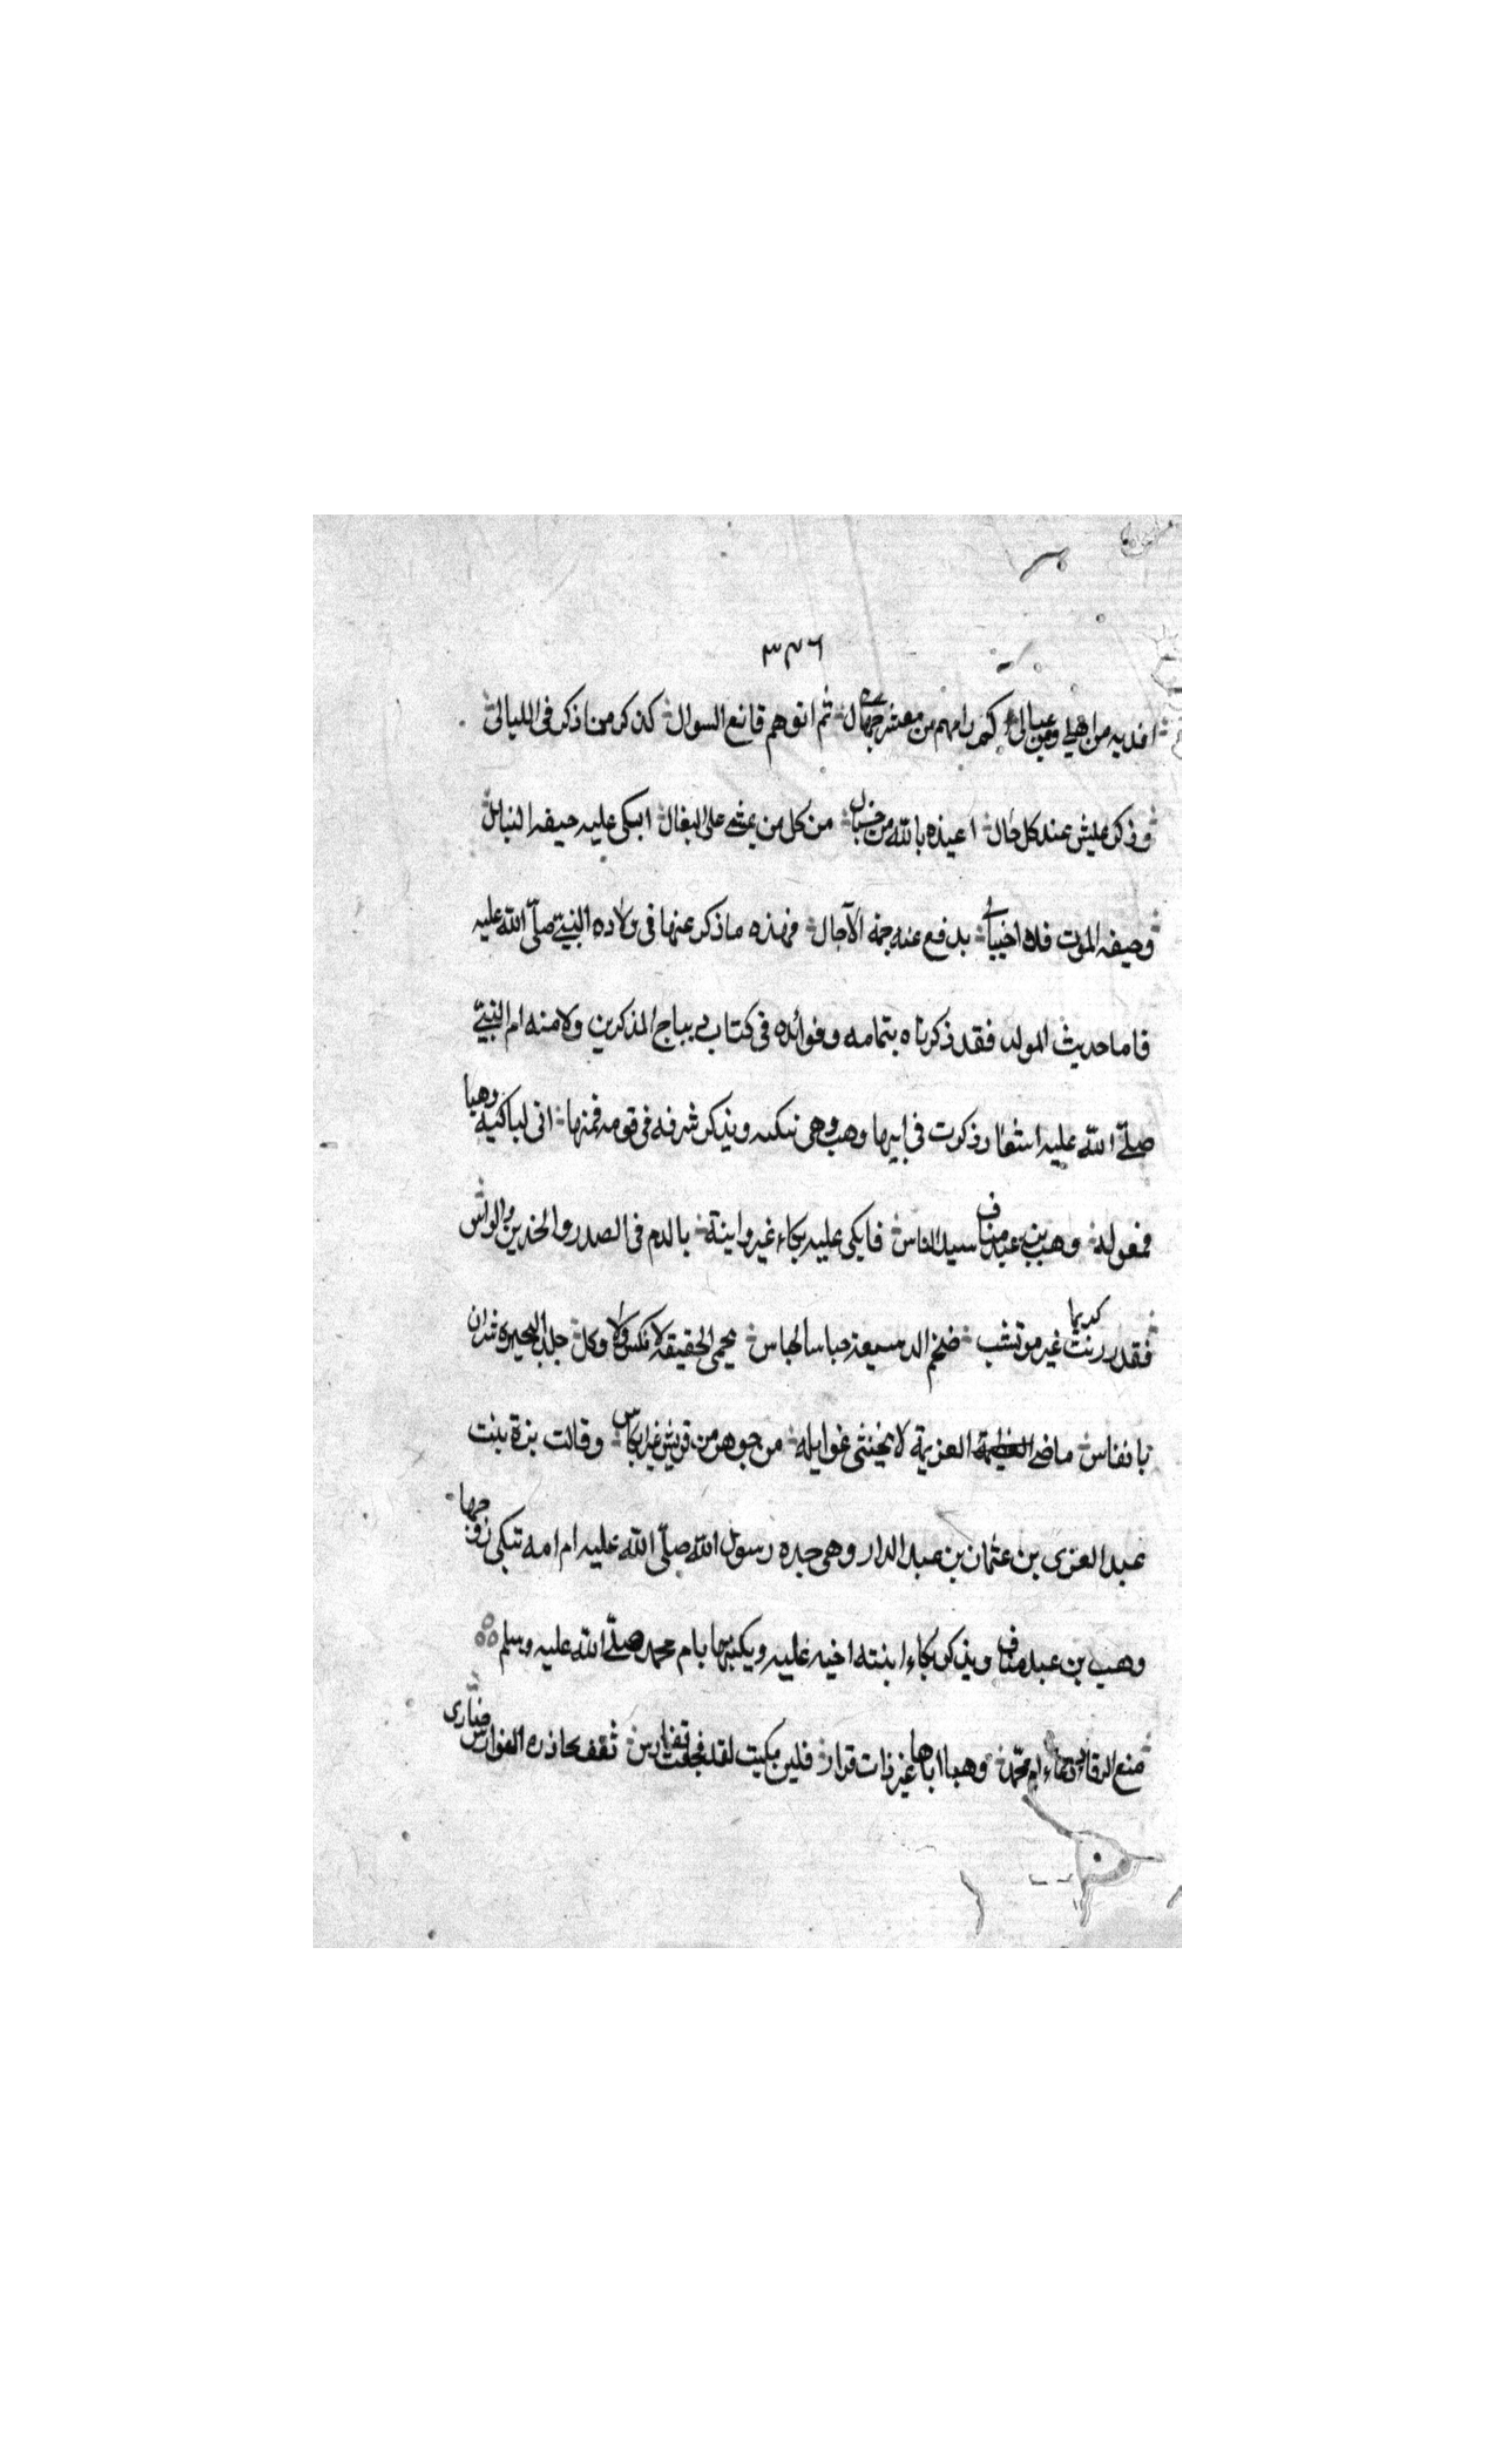 ٣٣٦
افديه من اهلي ومن عيالي كم رامهم من معشر جهال ثم اتوهم قانع السوال كذكر من اذكر في الليالي
وذكر عليش عند كل حال اعيذه بالله من خبال من كل من يمشي على البغال ابكى عليه حيفه النبال
وحيفه الموت فلا احتيال يدفع عنه جمة الآجال فهذه ما ذكر عنها في ولاده النبي صلى الله عليه
فاما حديث المولد فقد ذكرناه بتمامه وفوائده في كتاب ديباج المذكرين ولامنه ام النبي
صلى الله عليه اشعار ذكرت في ابيها وهب وهي تبكيه ويذكر شرفه في قومه فمنها انى لباكية وهبا
فمعوله وهب بن عبد مناف سيد الناس فابكى عليه بكاء غير وانية بالدم في الصدر والخدين والراس
فقد رزئت كريما غير موتشب ضخم الدسيعة حباسا لحباس يحمي الحقيقة لا نكس ولا وكل جلد النحيزه
بانفاس ماضي العزيمة لا تخشى غوايله من جوهر من قريش غير انكاس وقالت برة بنت
عبد العزى بن عثمان بن عبد الدار وهي جده رسول الله صلى الله عليه ام امه تبكي زوجها
وهب بن عبد مناف ويذكر بكاء ابنته اخيه عليه ويكنيها بام محمد صلى الله عليه وسلم
منع الرقاد بكاء ام محمد وهبا اباها غير ذات قرار فلين بكيت لقد فجعت بفارس ثقف تحاذره الفوارس ضارى